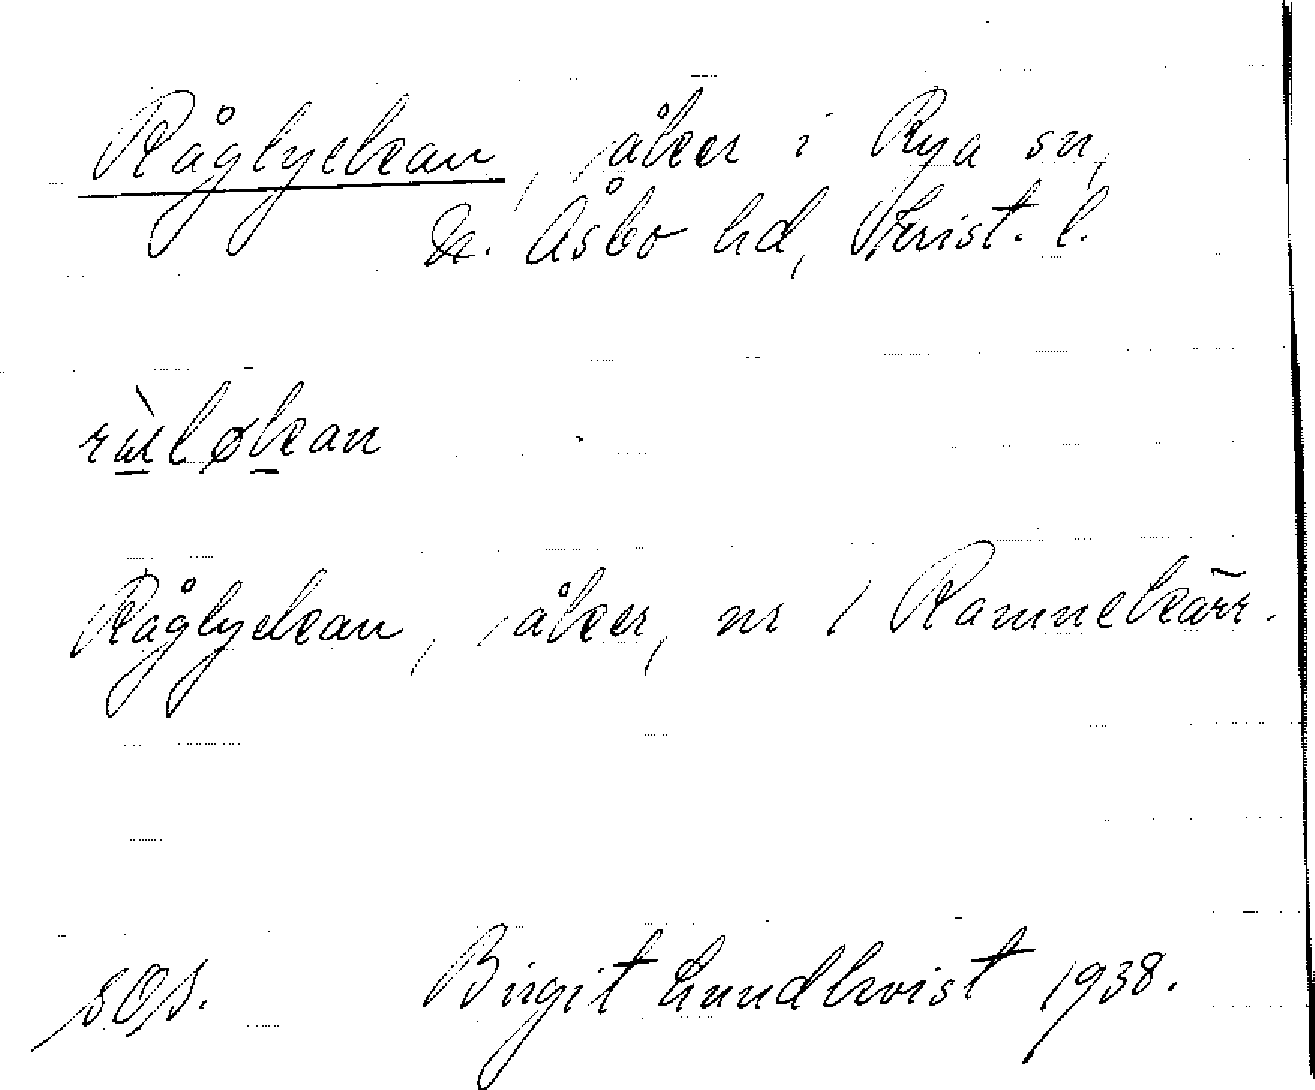 Råglyckan, åker i Rya sn,
N. Åsbo hd, Krist. l.
Råglyckan, åker, nr 1 Ramnekärr.
Birgit Lundkvist 1938.